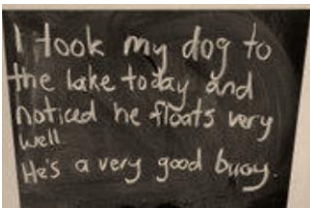 I took my dog to
the lake today and
noticed he floats very
well
He's a very good buoy.